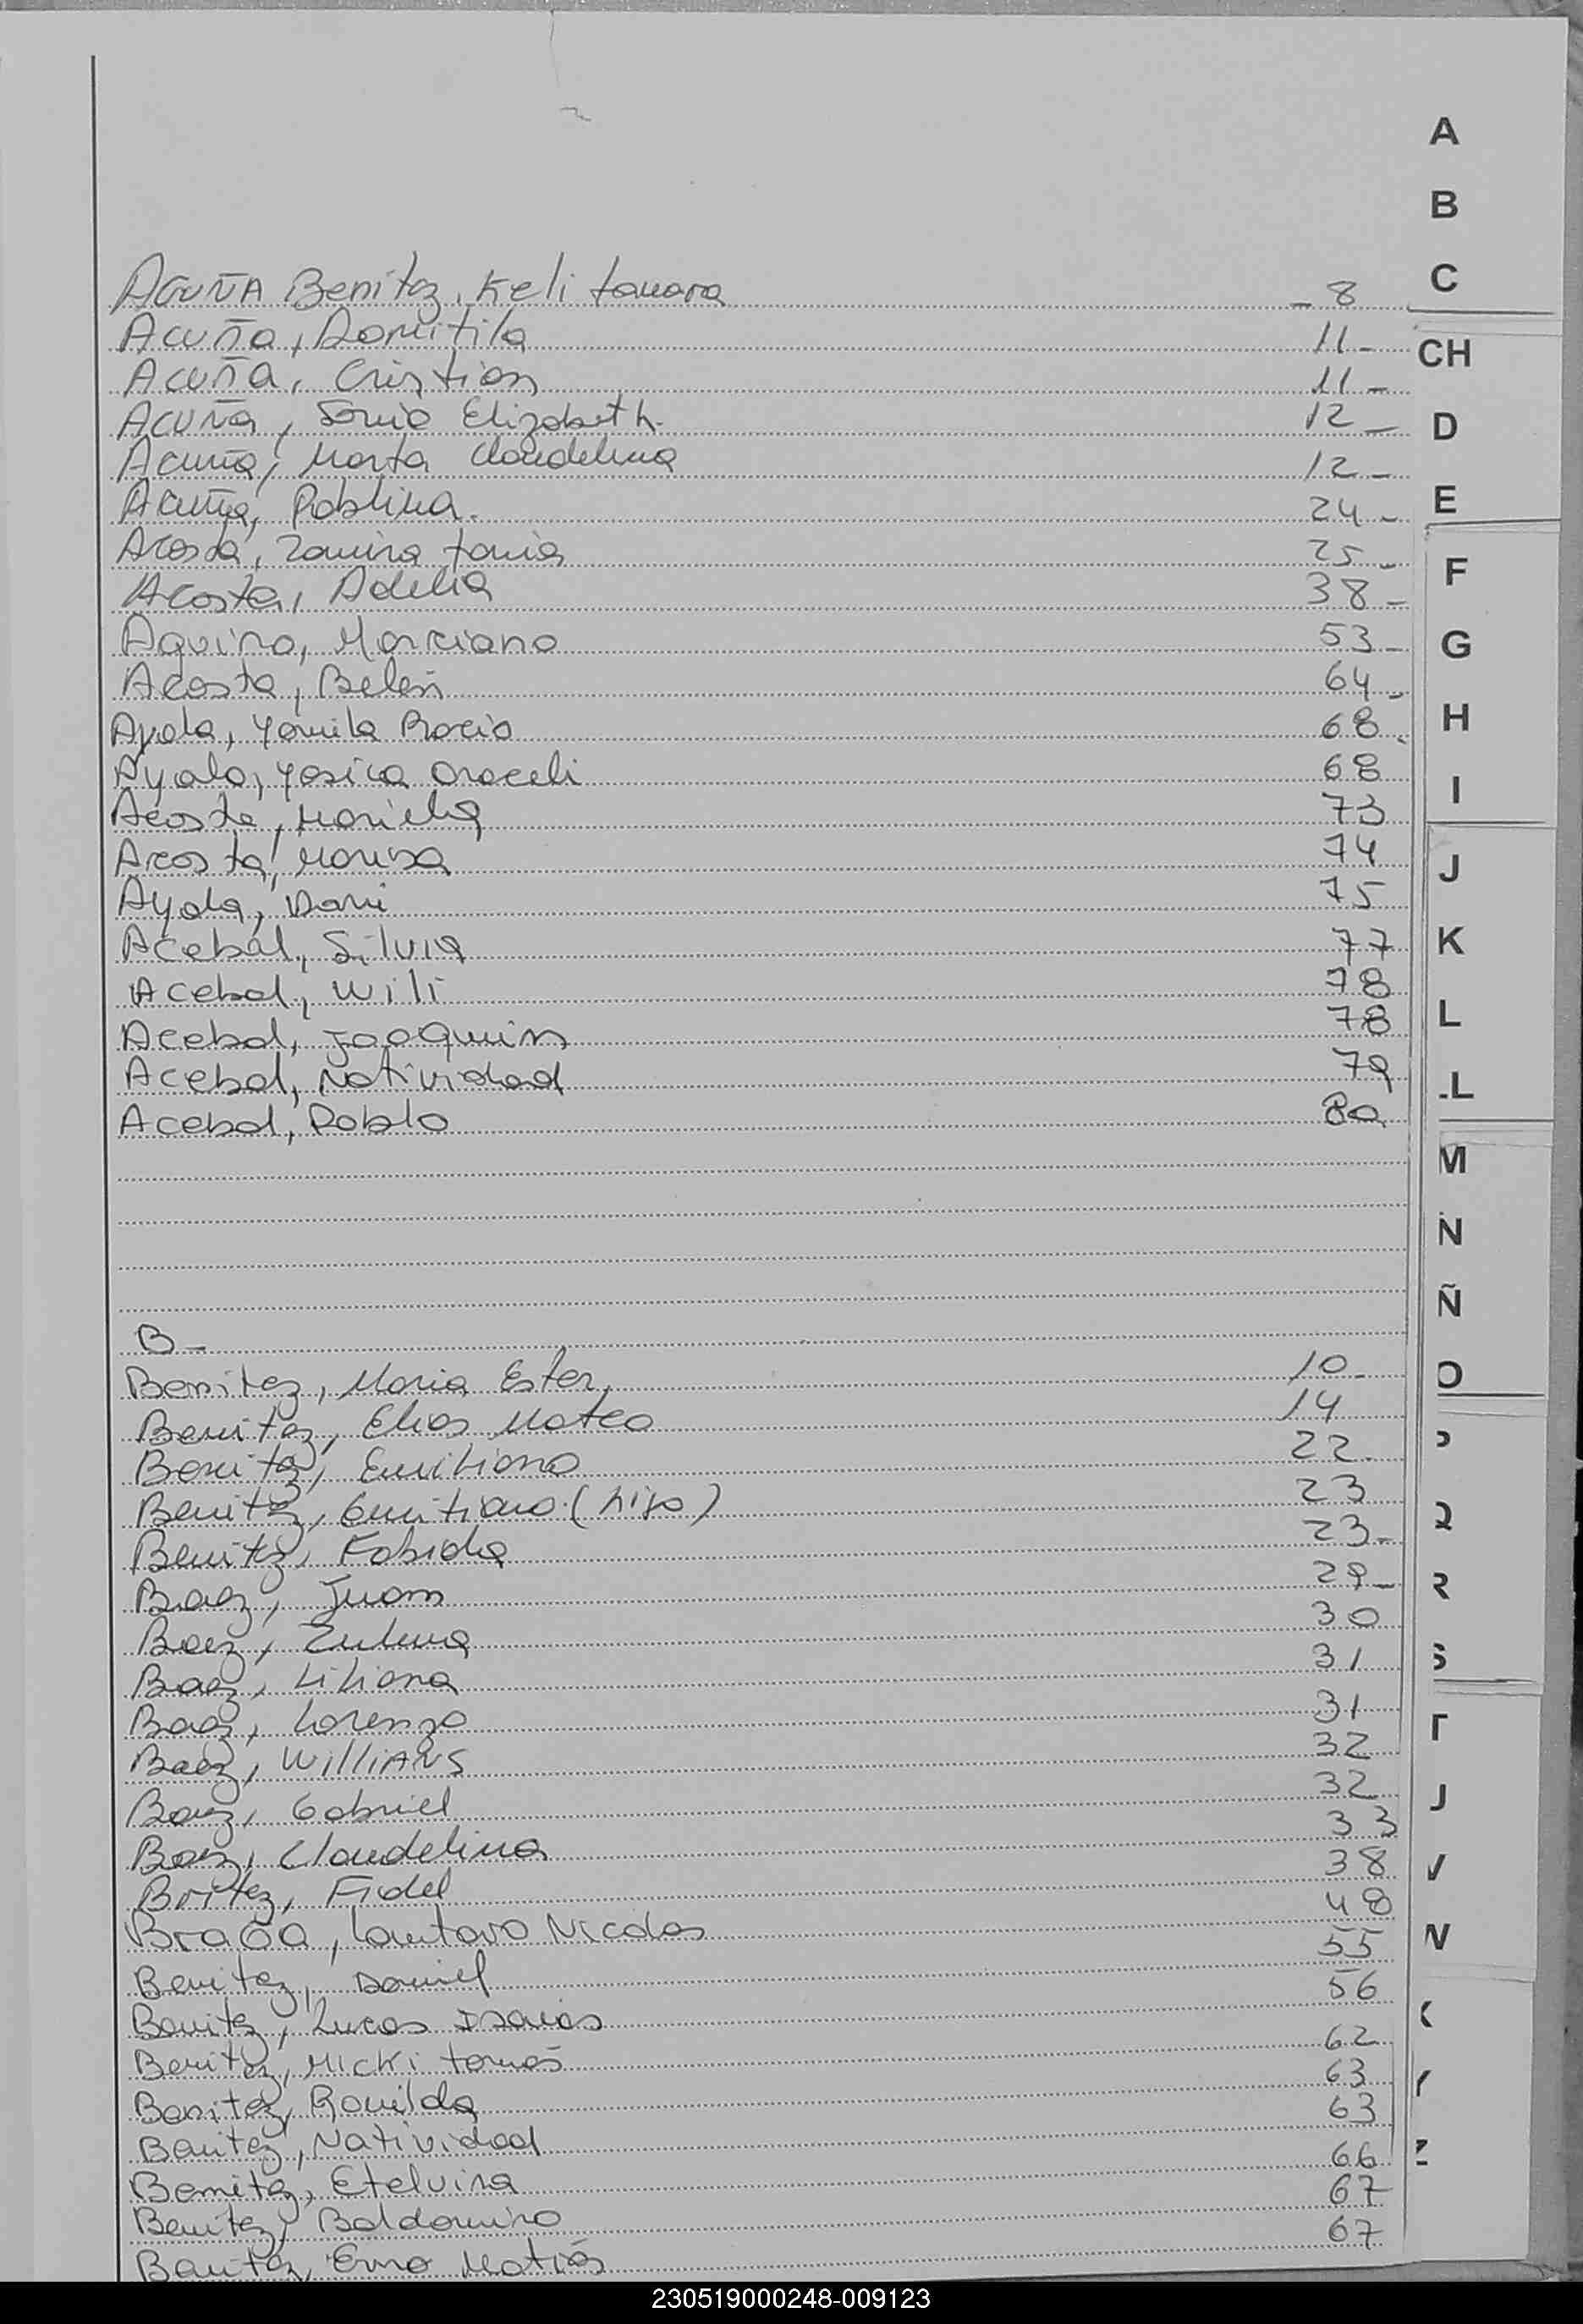 A
B
C
Acuña Benitez, Keli tamara - 8
Acuña, Domitila 11-
CH
Acuña, Cristian 11-
Acuña, Sonia Elizabeth. 12-
D
Acuña, Marta Claudelina 12-
E
Acuña, Pablina. 24-
Acosta, Zamira tania 25-
F
Acosta, Adelia 38-
Aquino, Marciano 53-
G
Acosta, Belen 64-
H
Ayala, Yamila Rocio 68.
Ayala, Yesica Araceli 68
I
Acosta, Mariela 73
Acosta, Marisa 74
J
Ayala, Dani 75
Acebal, Silvia 77
K
Acebal, Wili 78
Acebal, Joaquin 78
L
Acebal, Natividad 79
LL
Acebal, Pablo 80
M
N
Ñ
B-
O
Benitez, Maria Ester, 10-
Benitez, Elias Mateo 14
P
Benitez, Emiliano 22.
Benitez, Emiliano (hijo) 23
Q
Benitez, Fabiola 23-
Baez, Juan 29-
R
Baez, Zulma 30
Baez, Liliana 31
S
Baez, Lorenzo 31
T
Baez, Willians 32
Baez, Gabriel 32
Baez, Claudelina 33
Britez, Fidel 38
V
Braga, Lautaro Nicolas 48
W
Benitez, Daniel 55
Benitez, Lucas Isaias 56
Benitez, Micki tomas 62
Benitez, Romilda 63
Y
Benitez, Natividad 63
Z
Benitez, Etelvina 66
Benitez, Baldomiro 67
Benitez, Matias 67
230519000248-009123